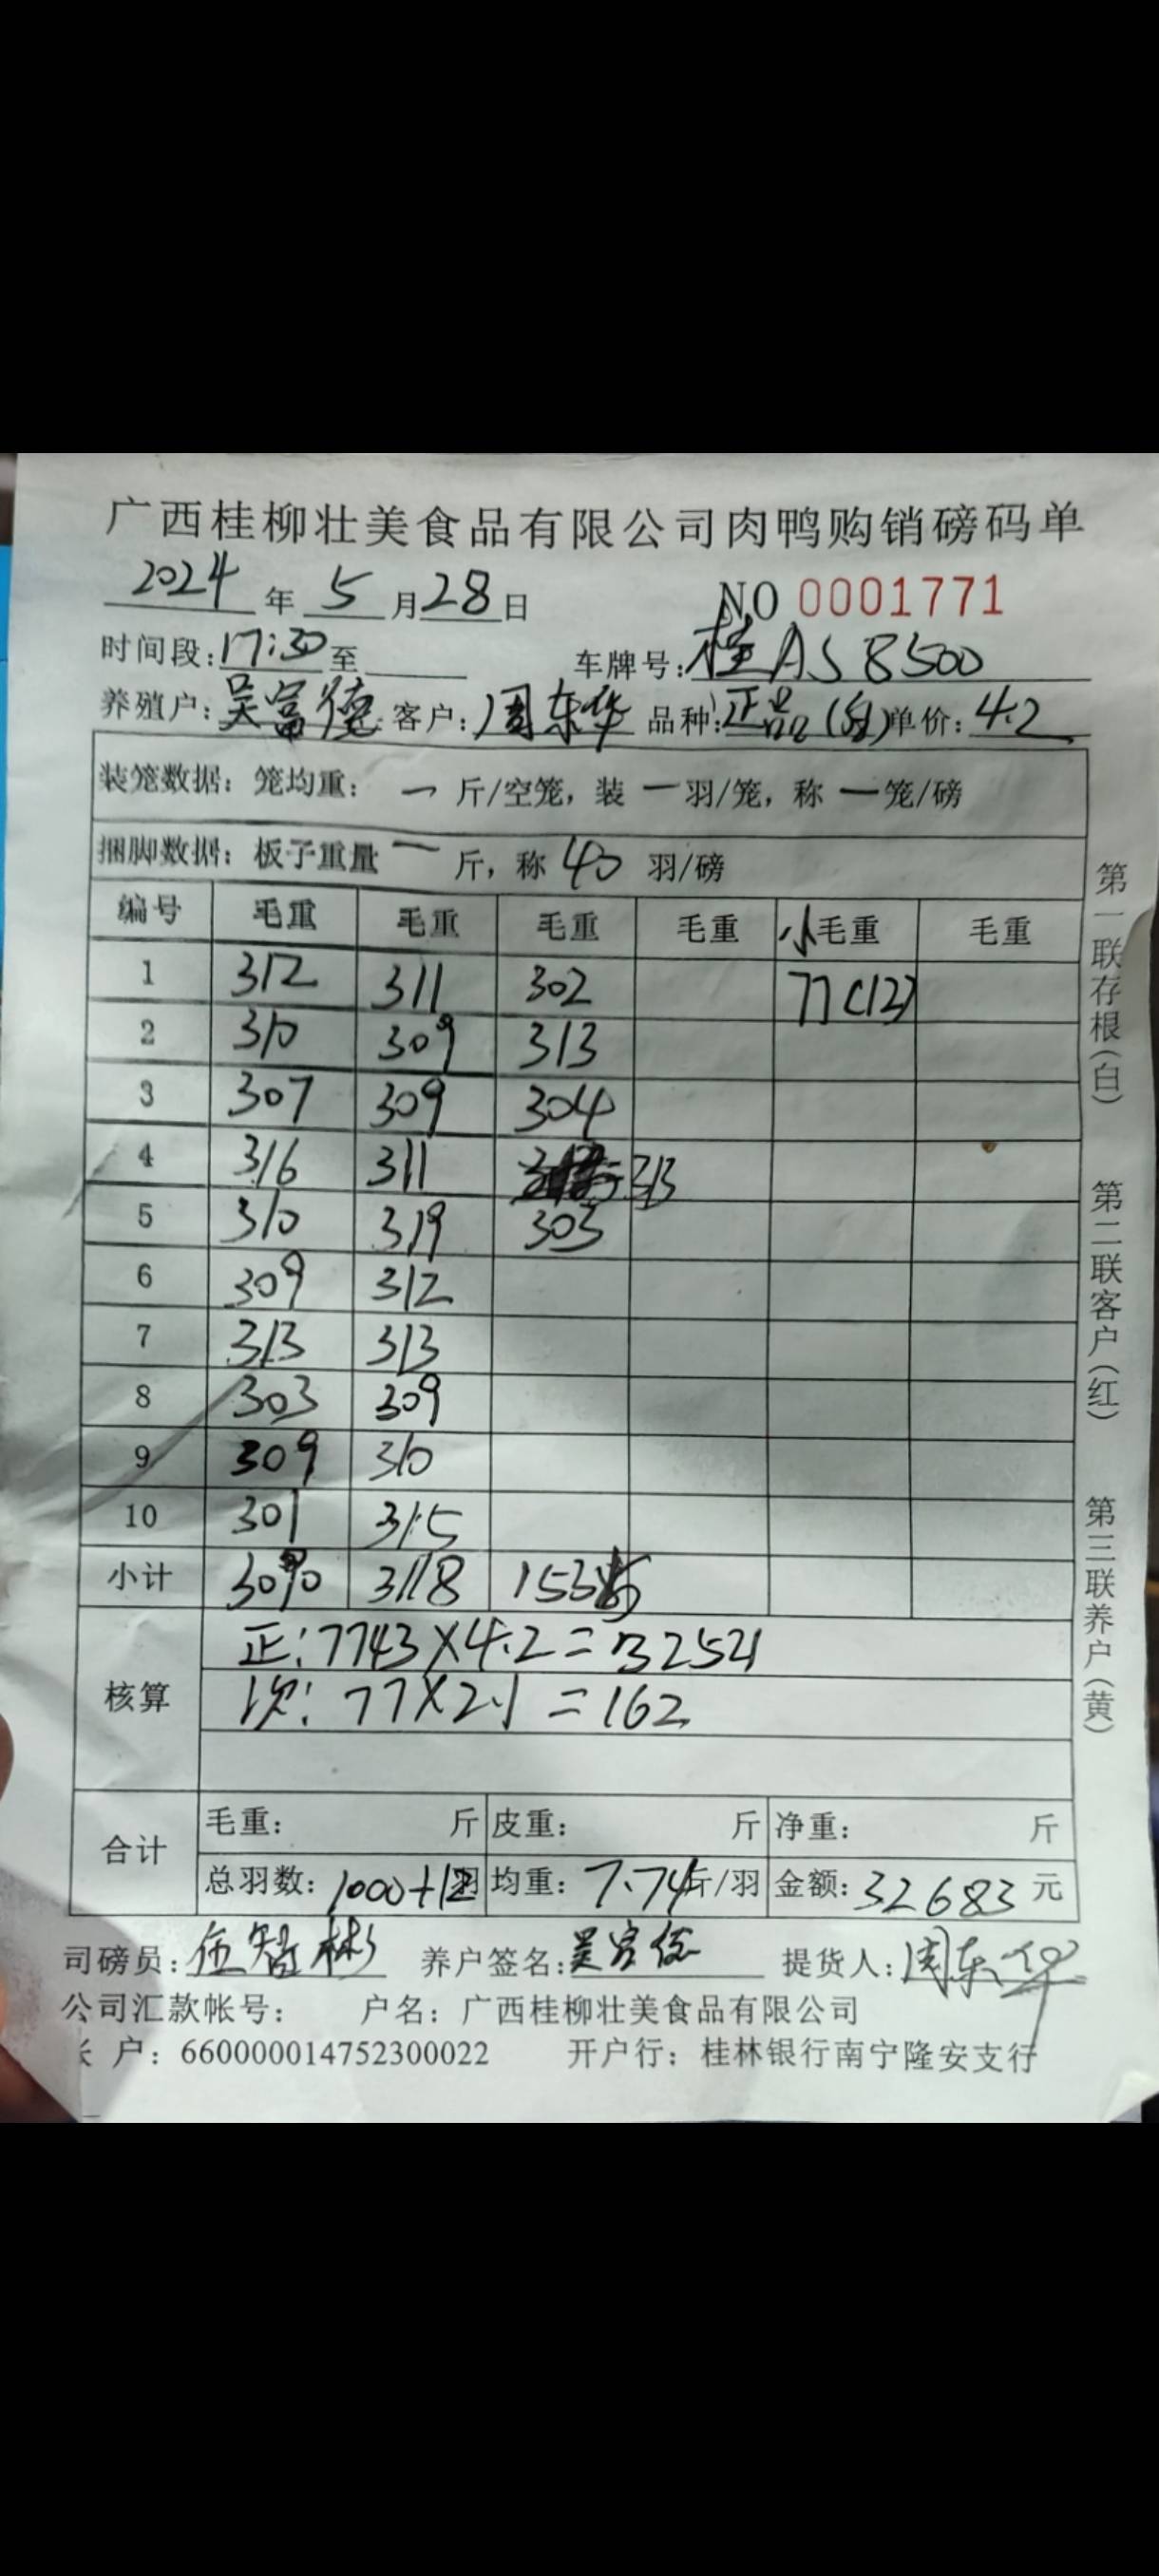 广西桂柳壮美食品有限公司肉鸭购销磅码单
2024年5月28日 NO 0001771
时间段:17:30至 车牌号:桂AS8500
养殖户:吴富德 客户:周东华 品种:正品(白)单价:4.2
装笼数据:笼均重: 一 斤/空笼,装 一 羽/笼,称 一 笼/磅
捆脚数据:板子重量 一 斤,称 40 羽/磅
编号 毛重 毛重 毛重 毛重 小毛重 毛重
1 312 311 302 77(12)
2 310 309 313
3 307 309 304
4 316 311 313
5 310 319 303
6 309 312
7 313 313
8 303 309
9 309 310
10 301 315
小计 3090 3118 1535
核算
正:7743×4.2=32521
次:77×2.1=162
合计
毛重: 斤 皮重: 斤 净重: 斤
总羽数:1000+12羽 均重:7.74斤/羽 金额:32683元
司磅员:伍智彬 养户签名:吴富德 提货人:周东华
公司汇款帐号: 户名:广西桂柳壮美食品有限公司
户:660000014752300022 开户行:桂林银行南宁隆安支行
第一联存根(白) 第二联客户(红) 第三联养户(黄)